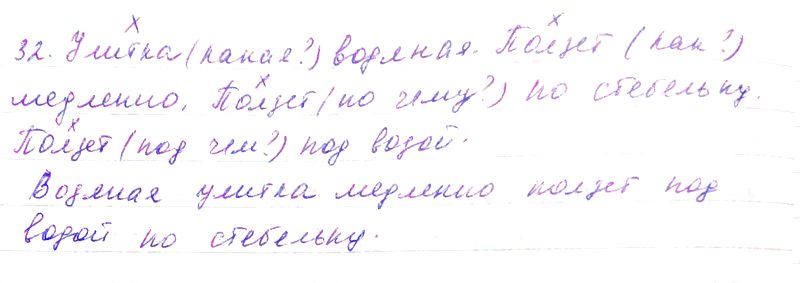 32. Улитка (какая?) водяная. Ползет (как?)
медленно. Ползет (по чему?) по стебельку.
Ползет (под чем?) под водой.
Водяная улитка медленно ползет под
водой по стебельку.